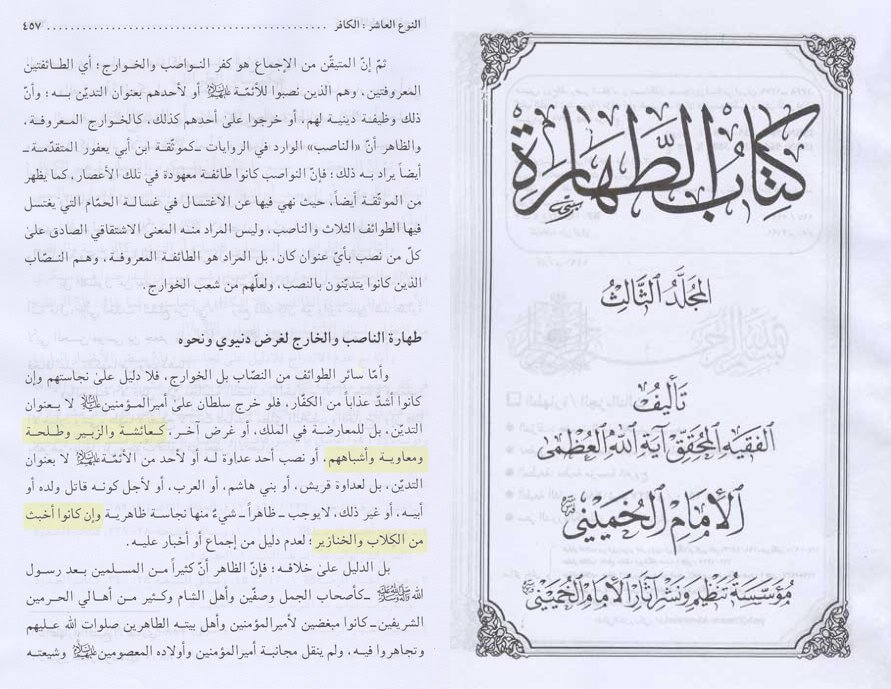 النوع العاشر : الكافر ............................................. ٤٥٧
ثمّ إنّ المتيقّن من الإجماع هو كفر النواصب والخوارج؛ أي الطائفتين
المعروفتين، وهم الذين نصبوا للأئمّة عليهم السلام أو لأحدهم بعنوان التديّن به؛ وأنّ
ذلك وظيفة دينية لهم، أو خرجوا علىٰ أحدهم كذلك، كالخوارج المعروفة،
والظاهر أنّ «الناصب» الوارد في الروايات ـ كموثّقة ابن أبي يعفور المتقدّمة ـ
أيضاً يراد به ذلك؛ فإنّ النواصب كانوا طائفة معهودة في تلك الأعصار، كما يظهر
من الموثّقة أيضاً، حيث نهي فيها عن الاغتسال في غسالة الحمّام التي يغتسل
فيها الطوائف الثلاث والناصب، وليس المراد منه المعنى الاشتقاقي الصادق علىٰ
كلّ من نصب بأيّ عنوان كان، بل المراد هو الطائفة المعروفة، وهم النصّاب
الذين كانوا يتديّنون بالنصب، ولعلّهم من شعب الخوارج.
طهارة الناصب والخارج لغرض دنيوي ونحوه
وأمّا سائر الطوائف من النصّاب بل الخوارج، فلا دليل علىٰ نجاستهم وإن
كانوا أشدّ عذاباً من الكفّار، فلو خرج سلطان علىٰ أميرالمؤمنين عليه السلام لا بعنوان
التديّن، بل للمعارضة في الملك، أو غرض آخر، كعائشة والزبير وطلحة
ومعاوية وأشباههم، أو نصب أحد عداوة له أو لأحد من الأئمّة عليهم السلام لا بعنوان
التديّن، بل لعداوة قريش، أو بني هاشم، أو العرب، أو لأجل كونه قاتل ولده أو
أبيه، أو غير ذلك، لايوجب ـ ظاهراً ـ شيءٌ منها نجاسة ظاهرية وإن كانوا أخبث
من الكلاب والخنازير؛ لعدم دليل من إجماع أو أخبار عليه.
بل الدليل علىٰ خلافه؛ فإنّ الظاهر أنّ كثيراً من المسلمين بعد رسول
الله صلى الله عليه وآله وسلم ـ كأصحاب الجمل وصفّين وأهل الشام وكثير من أهالي الحرمين
الشريفين ـ كانوا مبغضين لأميرالمؤمنين وأهل بيته الطاهرين صلوات الله عليهم
وتجاهروا فيه، ولم ينقل مجانبة أميرالمؤمنين وأولاده المعصومين عليهم السلام وشيعته
كتاب الطهارة
المجلد الثالث
تأليف
الفقيه المحقق آية الله العظمى
الإمام الخميني
مؤسسة تنظيم ونشر آثار الإمام الخميني